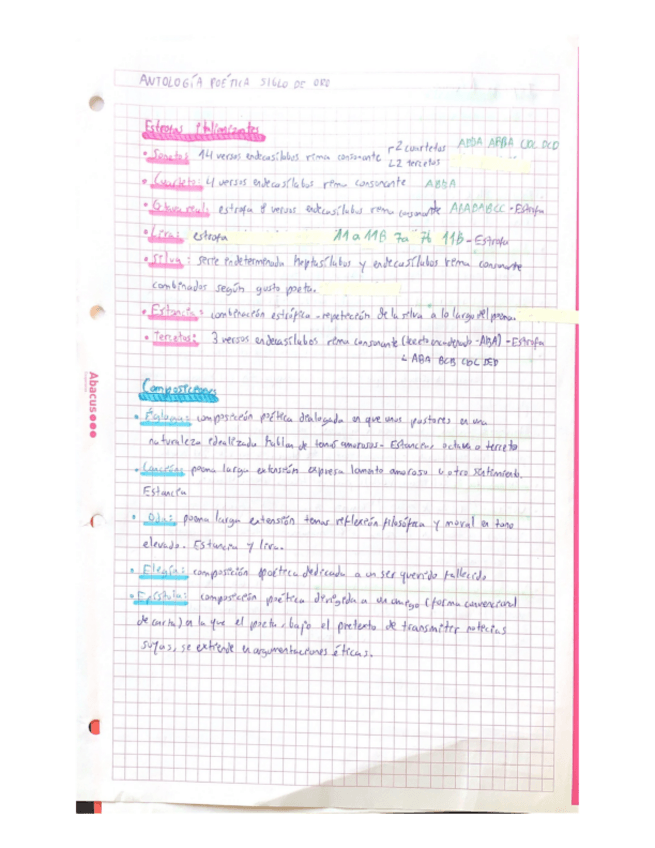 ANTOLOGÍA POÉTICA SIGLO DE ORO
Estrofas italianizantes
• Soneto: 14 versos endecasílabos rima consonante 2 cuartetos ABBA ABBA CDC DCD
2 tercetos
• Cuarteto: 4 versos endecasílabos rima consonante ABBA
• Octava real: estrofa 8 versos endecasílabos rima consonante ABABABCC - Estrofa
• Lira: estrofa 7a 7b 11B - Estrofa
• Silva: serie indeterminada heptasílabos y endecasílabos rima consonante
combinados según gusto poeta.
• Estancia: combinación estrófica - repetición de la silva a lo largo del poema.
• Tercetos: 3 versos endecasílabos rima consonante (terceto encadenado - ABA) - Estrofa
ABA BCB CDC DED
Composiciones
• Égloga: composición poética dialogada en que unos pastores en una
naturaleza idealizada hablan de temas amorosos - Estancias octava o terceto
• Canción: poema larga extensión expresa lamento amoroso u otro sentimiento.
Estancia
• Oda: poema larga extensión temas reflexión filosófica y moral en tono
elevado. Estancia y lira.
• Elegía: composición poética dedicada a un ser querido fallecido
• Epístola: composición poética dirigida a un amigo (forma convencional
de carta) en la que el poeta, bajo el pretexto de transmitir noticias
suyas, se extiende en argumentaciones éticas.
Abacus